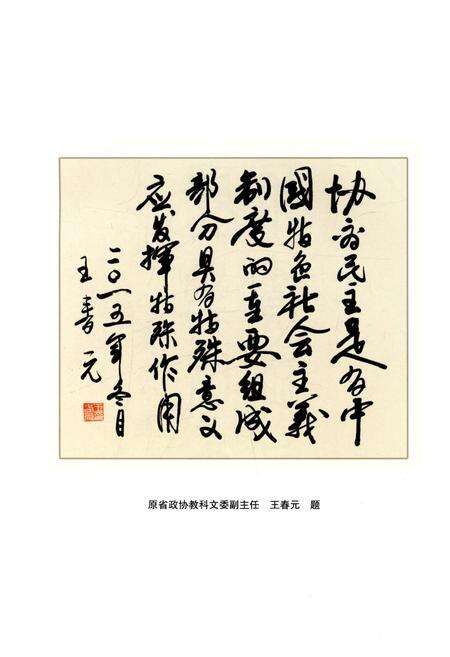 协商民主是有中
國特色社会主義
制度的重要组成
部分具有特殊意义
应发揮特殊作用
二〇一五年冬月
王春元
原省政协教科文委副主任 王春元 题